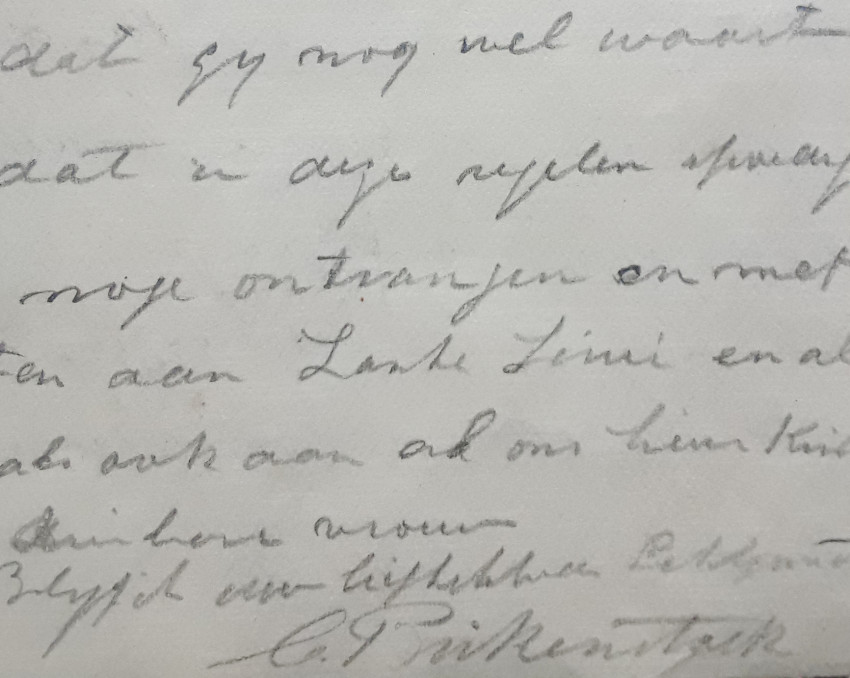 dat gy nog wel waart
dat u deze regelen spoedig
moge ontvangen en met
ten aan Tante en al
als ook aan al ons lieve Kin
vrouw
Blyf ik uw liefhebbende
C. Brikenstock